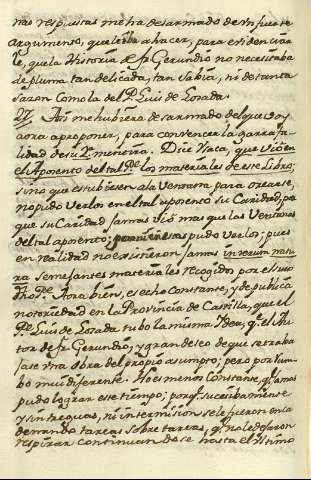 nas respuestas me ha desarmado de un fuerte
argumento, que iba a hacer, para evidenciar
le, que la Historia de fr. Gerundio no necesitaba
de pluma tan delicada, tan sabia, ni de tanta
sazon como la del P. Luis de Losada.
Assi me hubiera desarmado del que voy
aora a proponer, para convencer la garrafa
lidad de su mentira. Dice Vaca, que vió en
el Aposento del tal Pe. los materiales de este Libro,
sino que estubiesen a la Ventana para orearse,
no pudo verlos en el tal aposento su Caridad, pr
que su Caridad jamas vió mas que las Ventanas
del tal aposento; pudo verlos; pues
en realidad no existieron jamas in rerum natu
ra semejantes materiales recogidos por el suso
dho. Pe. Aora bien, es echo Constante, y de publica
notoriedad en la Provincia de Castilla, que el
P. Luis de Losada tubo la misma Idea, q. el Au
tor de fr. Gerundio, y gran deseo de que se traba
jase una obra del propio asumpto; pero por rum
bo muy diferente. No es menos Constante, q. jamas
pudo lograr este tiempo; porq. sucesibamente
y sin treguas, ni intermision se le fueron enca
denando tareas sobre tareas, q. no le dejaron
respirar continuandose hasta el ultimo